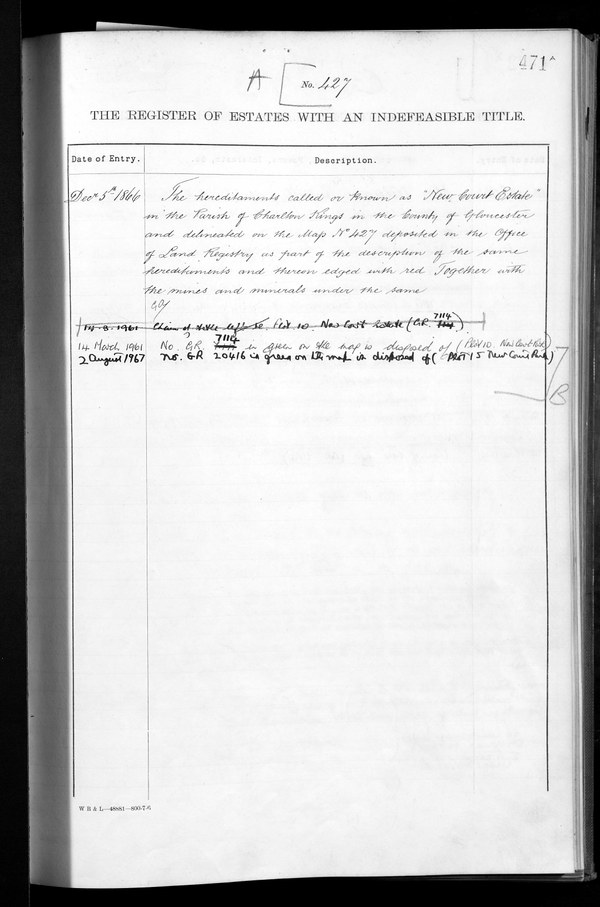 471A
A No. 427
THE REGISTER OF ESTATES WITH AN INDEFEASIBLE TITLE.
Date of Entry. Description.
Decr 5th 1866 The hereditaments called or known as "New Court Estate"
in the Parish of Charlton Kings in the County of Gloucester
and delineated on the Map No 427 deposited in the Office
of Land Registry as part of the description of the same
hereditaments and thereon edged with red Together with
the mines and minerals under the same
14.3.1961 Plot 10. New Court Estate (GR. 7114).
14 March 1961 No. GR. 7114 in green on the map is disposed of (Plot 10. New Court Park)
2 August 1967 No. GR 20416 in green on the map is disposed of (PLOT 15 New Court Park)
B
W B & L—48881—800-7-5